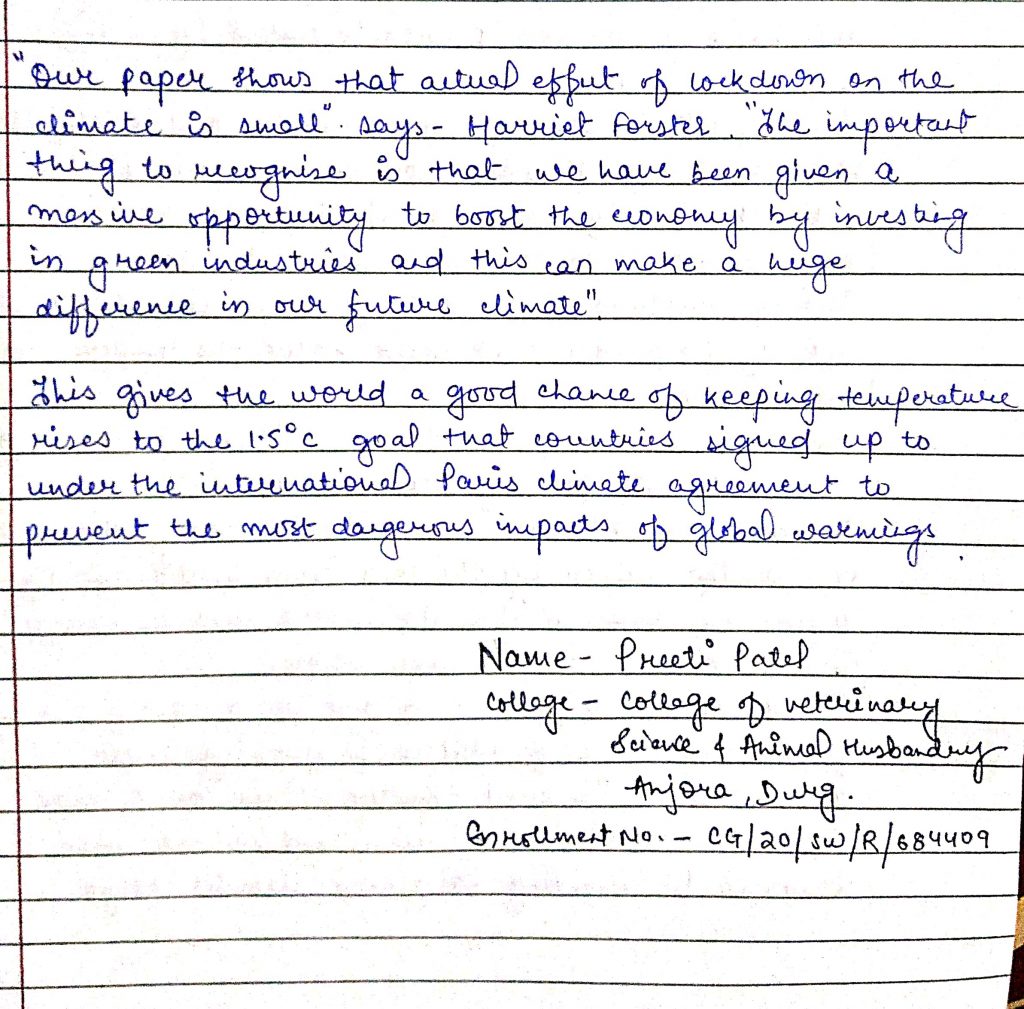 "Our paper shows that actual effect of lockdown on the
climate is small". says - Harriet Forster. "The important
thing to recognise is that we have been given a
massive opportunity to boost the economy by investing
in green industries and this can make a huge
difference in our future climate".
This gives the world a good chance of keeping temperature
rises to the 1.5°C goal that countries signed up to
under the international Paris climate agreement to
prevent the most dangerous impacts of global warmings.
Name - Preeti Patel
College - College of veterinary
Science & Animal Husbandry
Anjora, Durg.
Enrollment No. - CG/20/SW/R/684409